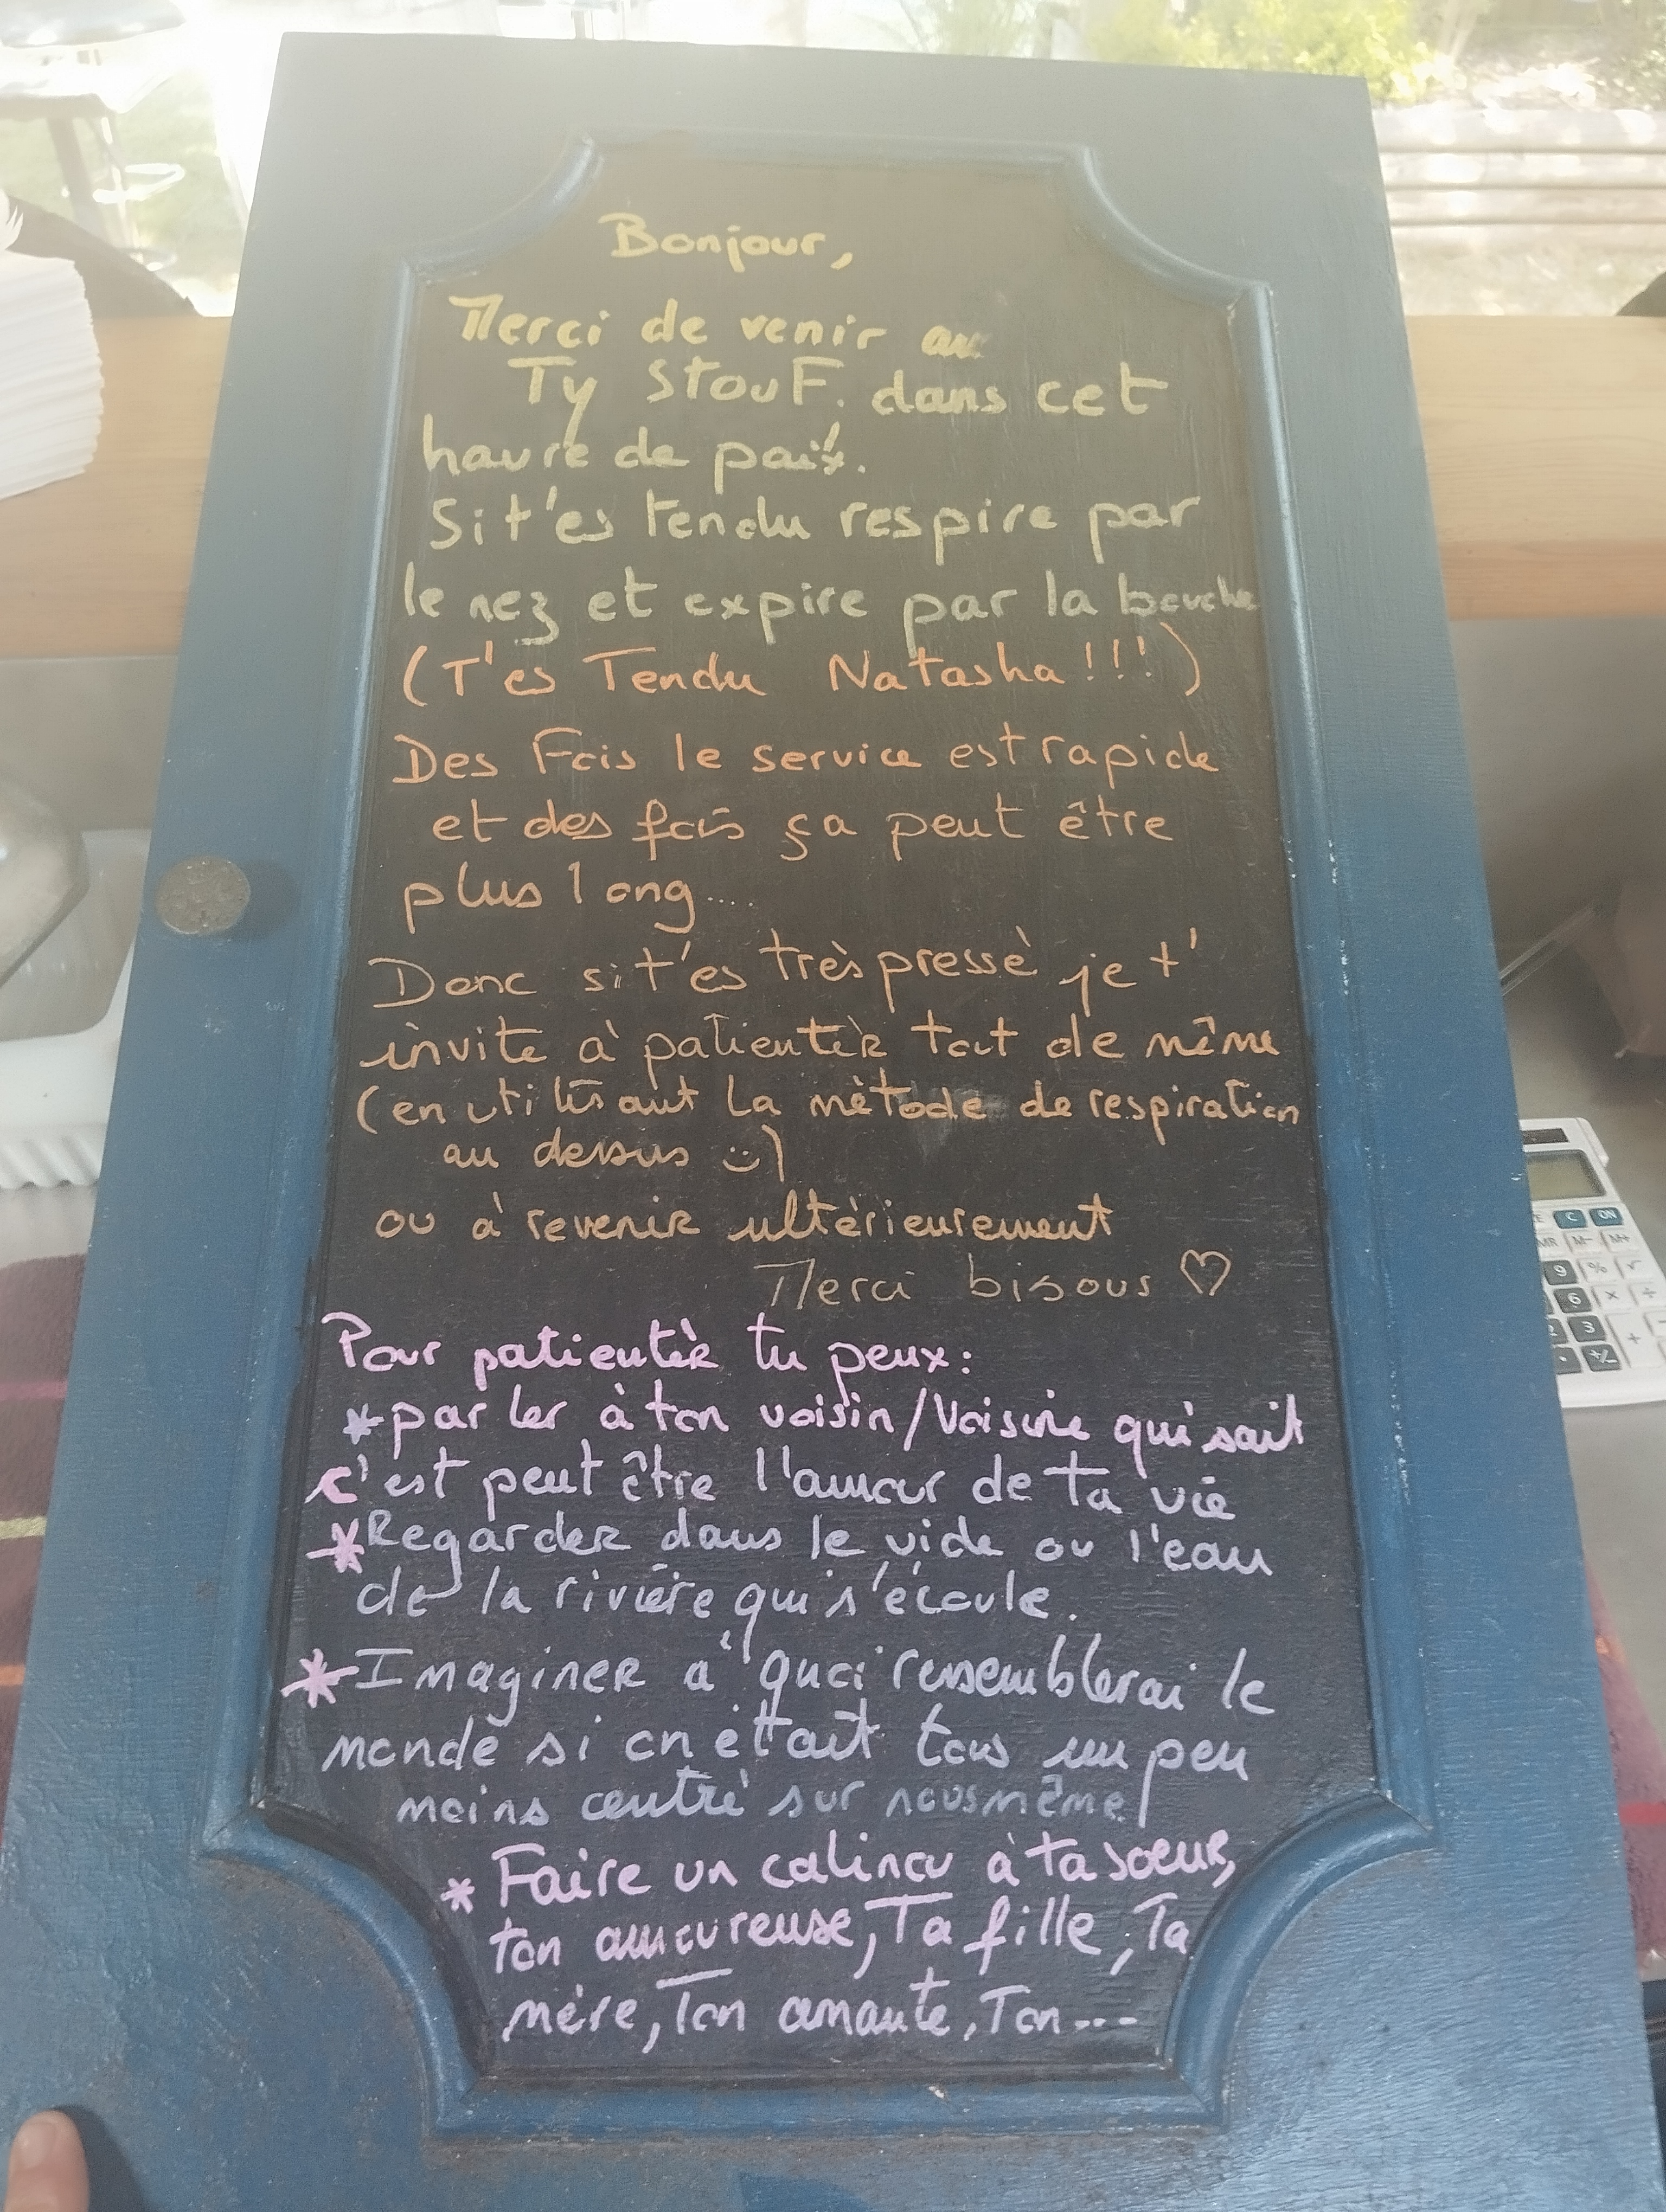 Bonjour,
Merci de venir au
Ty StouF. dans cet
havre de paix.
Si t'es tendu respire par
le nez et expire par la bouche
(T'es Tendu Natasha!!!)
Des Fois le service est rapide
et des fois ça peut être
plus long....
Donc si t'es très pressè je t'
invite à patientèR tout de même
(en utilisant la mètode de respiration
au dessus :))
ou à reveniR ultèrieurement
Merci bisous ♡
Pour patientèR tu peux:
*parler à ton voisin/Voisine qui sait
c'est peut être l'amour de ta vie
*RegardeR dans le vide ou l'eau
de la rivière qui s'écoule.
*ImagineR a quoi ressemblerai le
monde si on ètait tous un peu
moins centré sur nous même!
* Faire un calinou à ta soeuR,
ton amoureuse, Ta fille, Ta
mère, Ton amante, Ton...
C ON
MR M- M+
9 % √
6 × ÷
2 3 +
. +/-